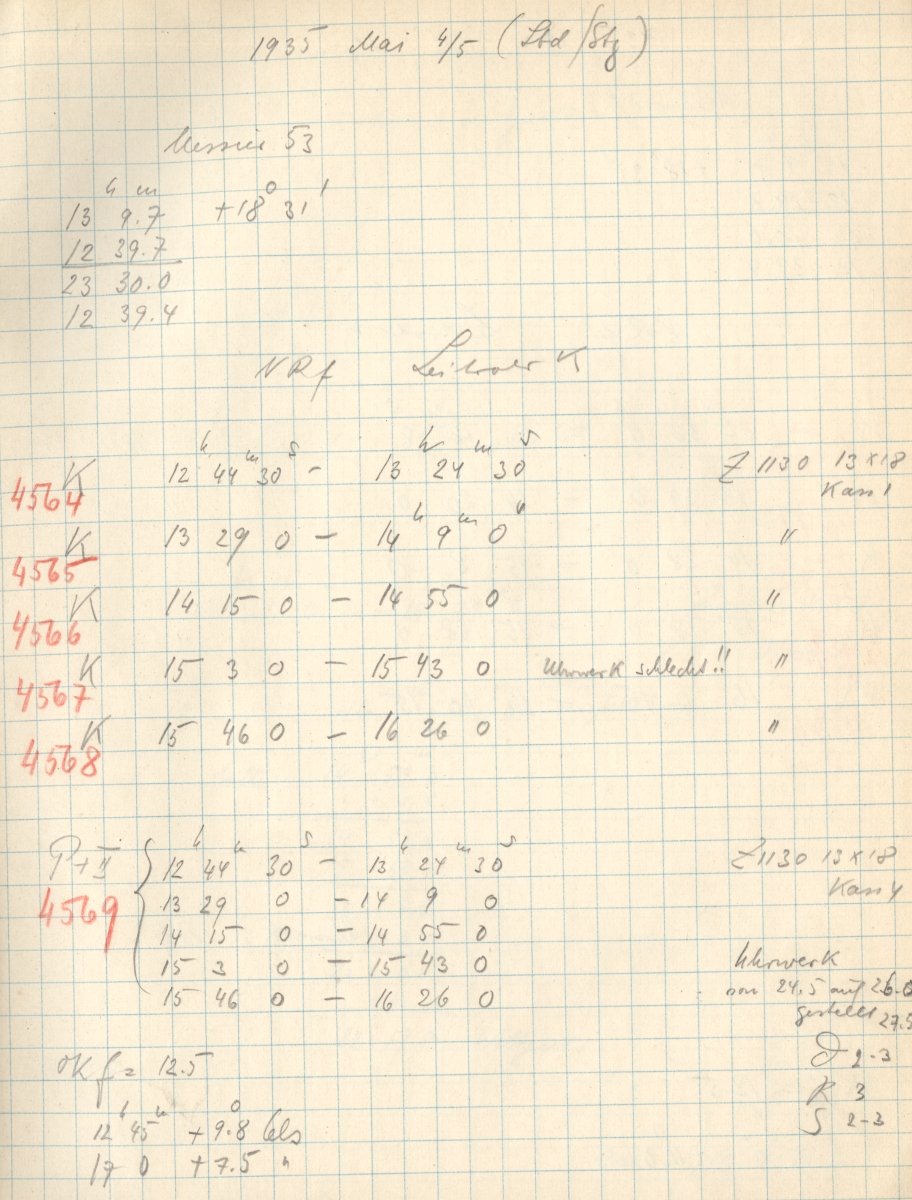 1935 Mai 4/5 (Sbd/Stg)
Messier 53
h m ° '
13 9.7 +18 31
12 39.7
23 30.0
12 39.4
NRf K
h m s h m s
K 12 44 30 - 13 24 30 Z 1130 13x18
4564 Kass 1
h m s
K 13 29 0 - 14 9 0 "
4565
K 14 15 0 - 14 55 0 "
4566
K 15 3 0 - 15 43 0 Uhrwerk schlecht!! "
4567
K 15 46 0 - 16 26 0 "
4568
h m s h m s
P+II 12 44 30 - 13 24 30 Z 1130 13x18
4569 13 29 0 - 14 9 0 Kass 4
14 15 0 - 14 55 0
15 3 0 - 15 43 0 Uhrwerk
15 46 0 - 16 26 0 von 24.5 auf 26.0
gestellt 27.5
f = 12.5 D 2-3
R 3
h m °
12 45 +9.8 Cels S 2-3
17 0 +7.5 "